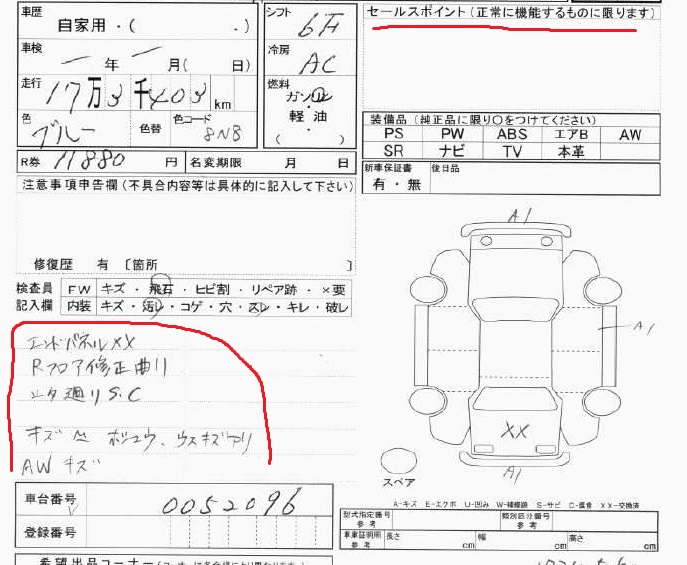 車歴
自家用・( .)
シフト
6F
車検
年 月( 日)
冷房
AC
走行
17万3千403km
燃料
ガソリン
軽油
( )
色
ブルー
色替
色コード
8NB
R券 11880 円
名変期限 月 日
セールスポイント(正常に機能するものに限ります)
装備品(純正品に限り○をつけてください)
PS PW ABS エアB AW
SR ナビ TV 本革
新車保証書
有・無
後日品
注意事項申告欄(不具合内容等は具体的に記入して下さい)
修復歴 有 〔箇所 〕
検査員
記入欄
FW キズ・飛石・ヒビ割・リペア跡・×要
内装 キズ・汚レ・コゲ・穴・スレ・キレ・破レ
エンドパネルXX
Rフロア修正曲り
廻りS.C
キズ
ボコウ、ウスキズアリ
AW キズ
A1
A1
XX
A1
スペア
車台番号 0052096
登録番号
A-キズ E-エクボ U-凹み W-補修跡 S-サビ C-腐食 XX-交換済
型式指定番号
参考
類別区分番号
参考
車車証明用
参考
長さ cm
幅 cm
高さ cm
希望出品コーナー